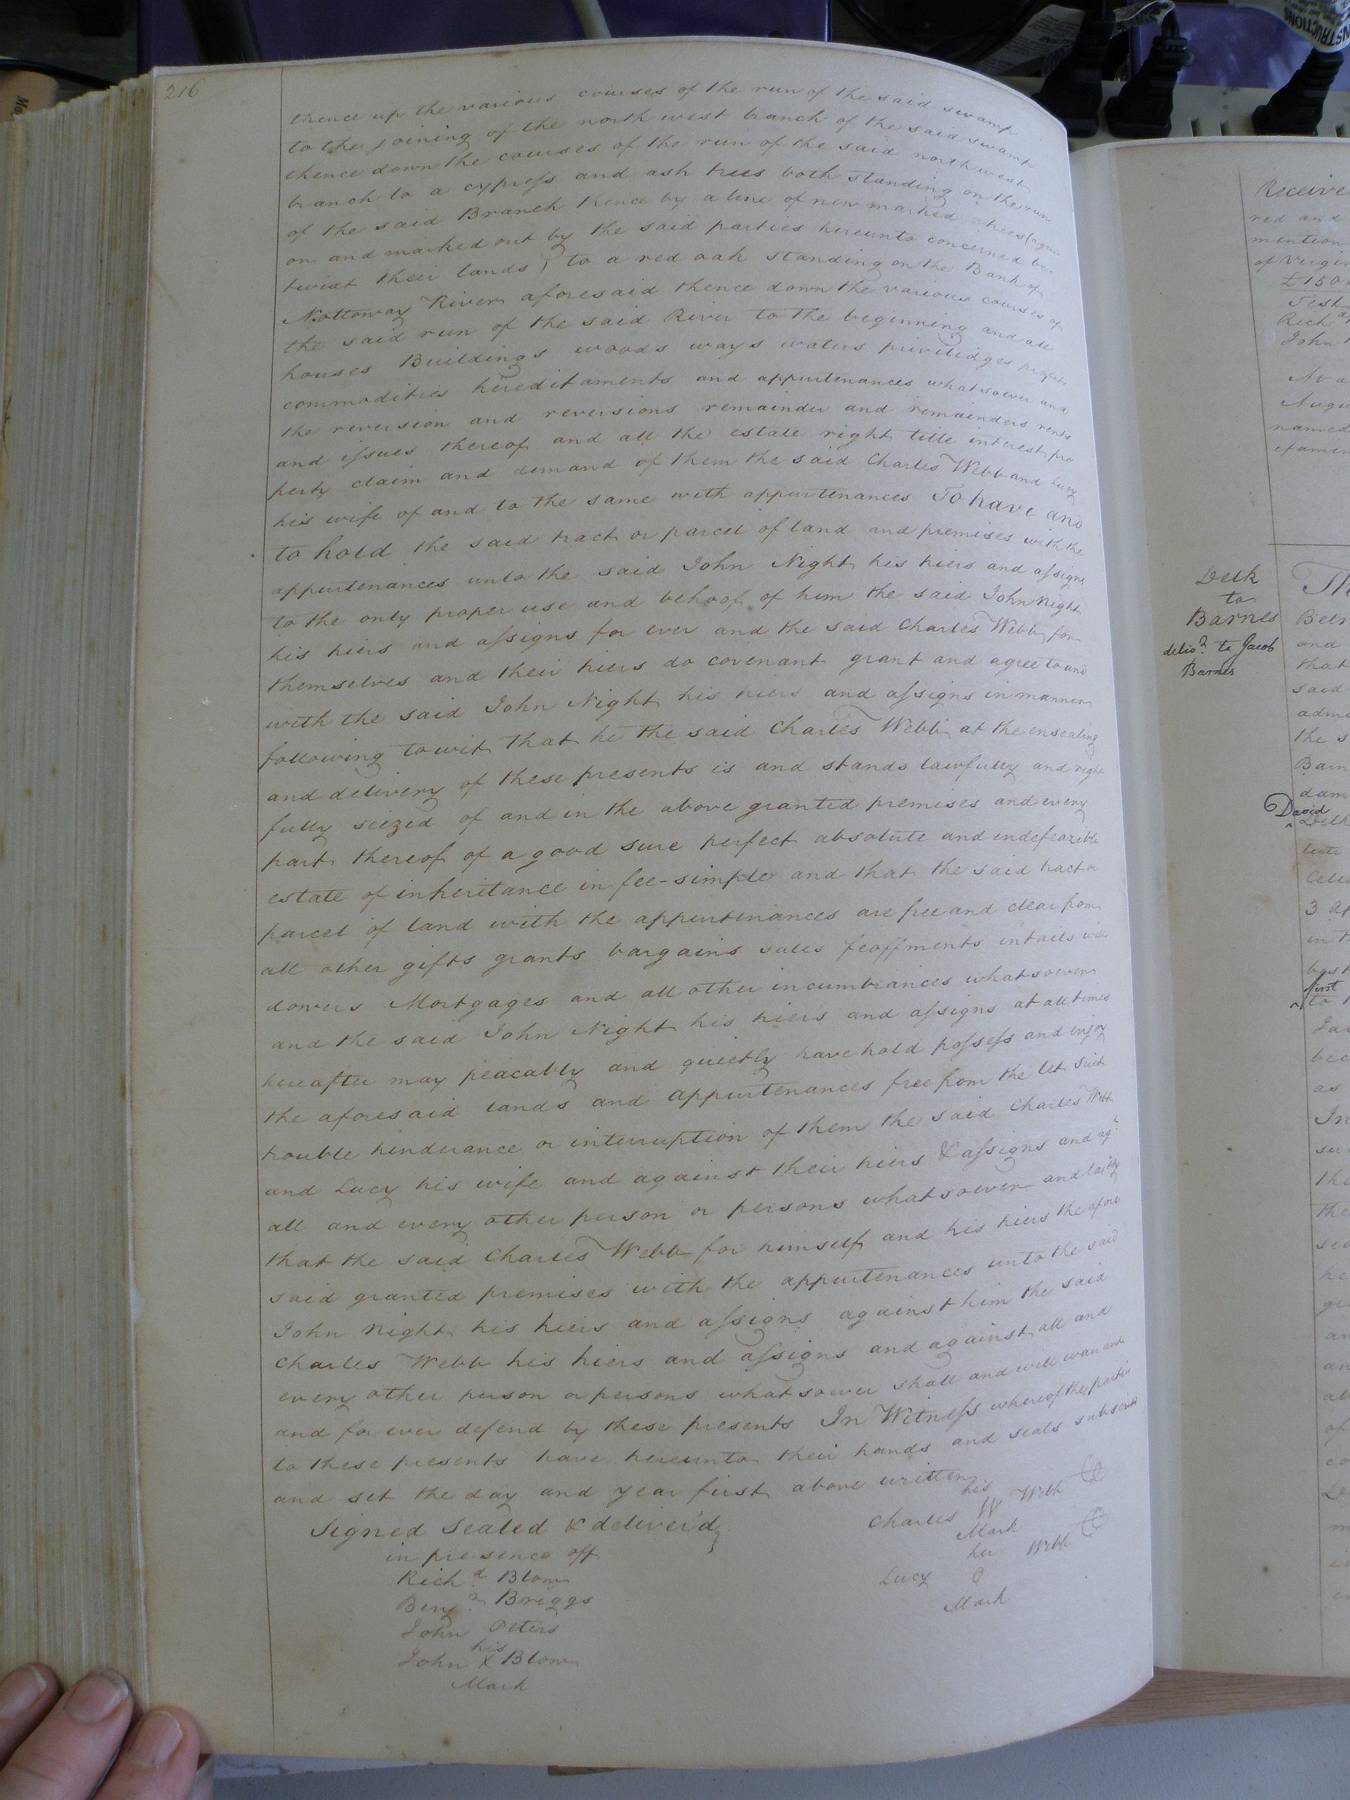 216
thence up the various courses of the run of the said swamp
to the joining of the north west branch of the said swamp
thence down the courses of the run of the said north west
branch to a cypress and ash trees both standing on the run
of the said Branch thence by a line of new marked trees (agreed
on and marked out by the said parties hereunto concerned be-
twixt their lands) to a red oak standing on the Bank of
Nottoway River aforesaid thence down the various courses of
the said run of the said River to the beginning and all
houses Buildings woods ways waters priviledges profits
commodities hereditaments and appurtenances whatsoever and
the reversion and reversions remainder and remainders rents
and issues thereof and all the estate right title interest pro
perty claim and demand of them the said Charles Webb and Lucy
his wife of and to the same with appurtenances To have and
to hold the said tract or parcel of land and premises with the
appurtenances unto the said John Night his hiers and assigns
to the only proper use and behoof of him the said John Night
his hiers and assigns for ever and the said Charles Webb for
themselves and their hiers do covenant grant and agree to and
with the said John Night his hiers and assigns in manner
following towit that he the said Charles Webb at the ensealing
and delivery of these presents is and stands lawfully and right
fully seized of and in the above granted premises and every
part thereof of a good sure perfect absolute and indefeazeble
estate of inheritance in fee-simple and that the said tract or
parcel of land with the appurtenances are free and clear from
all other gifts grants bargains sales feoffments intails wills
dowers Mortgages and all other incumbrances whatsoever
and the said John Night his hiers and assigns at all times
hereafter may peacably and quietly have hold possess and enjoy
the aforesaid lands and appurtenances free from the let suit
trouble hinderance or interruption of them the said Charles Webb
and Lucy his wife and against their hiers & assigns and agt
all and every other person or persons whatsoever and lastly
that the said Charles Webb for himself and his hiers the afore
said granted premises with the appurtenances unto the said
John Night his hiers and assigns against him the said
Charles Webb his hiers and assigns and against all and
every other person or persons whatsoever shall and will warrant
and for ever defend by these presents In Witness whereof the parties
to these presents have hereunto their hands and seals subscribed
and set the day and year first above written
Signed Sealed & deliver'd
in presence off
Richd Blow
Benjn Briggs
John Peters
his
John X Blow
Mark
his
Charles W Webb
Mark
her
Lucy O Webb
Mark
Delk
to
Barnes
delivd to Jacob
Barnes
David
first
Receive
red and
mention
of Virgin
£150
Test
Rich
John
At a
Augu
named
examin
Th
Betw
and
that
said
adm
the s
Barn
dam
Delk
3
in t
to
In